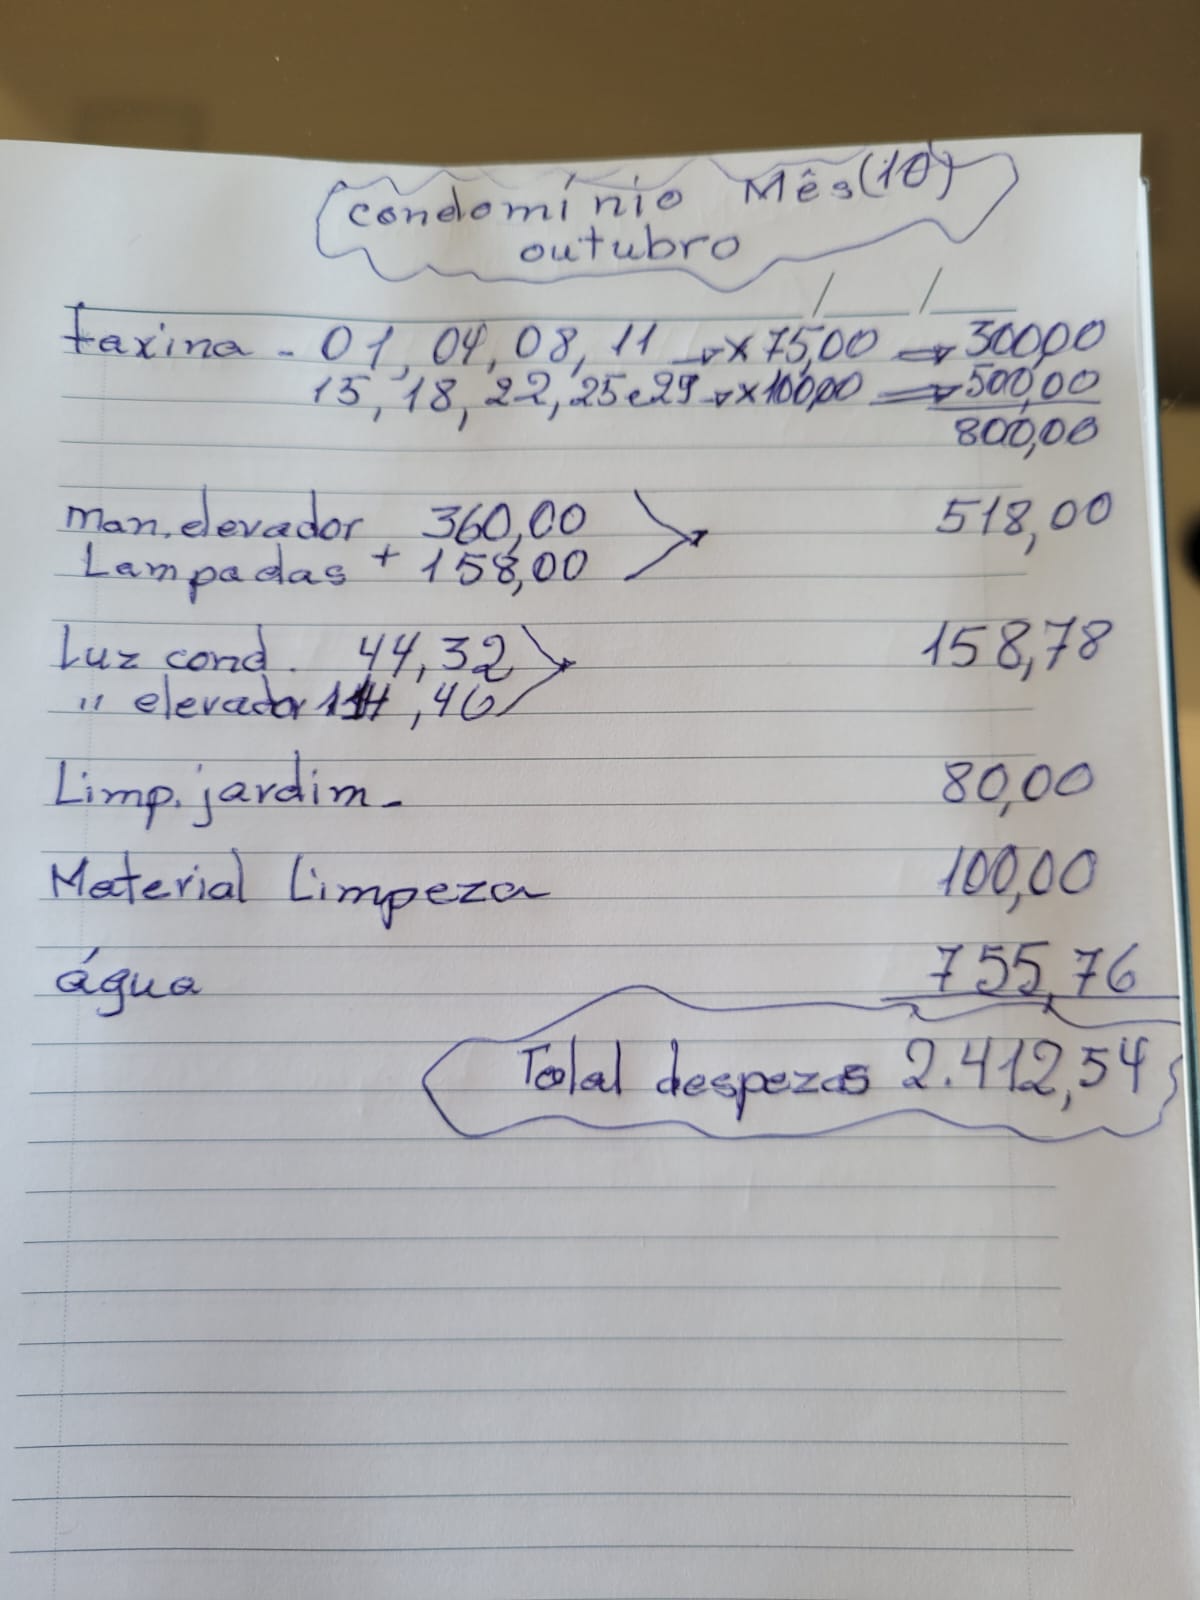 Condomínio Mês (10)
outubro
faxina - 01, 04, 08, 11 → x 75,00 ⇒ 300,00
15, 18, 22, 25 e 29 → x 100,00 ⇒ 500,00
800,00
Man. elevador 360,00 518,00
Lampadas + 158,00
Luz cond. 44,32 158,78
" elevador 114,46
Limp. jardim - 80,00
Material Limpeza 100,00
água 755,76
Total despezas 2.412,54